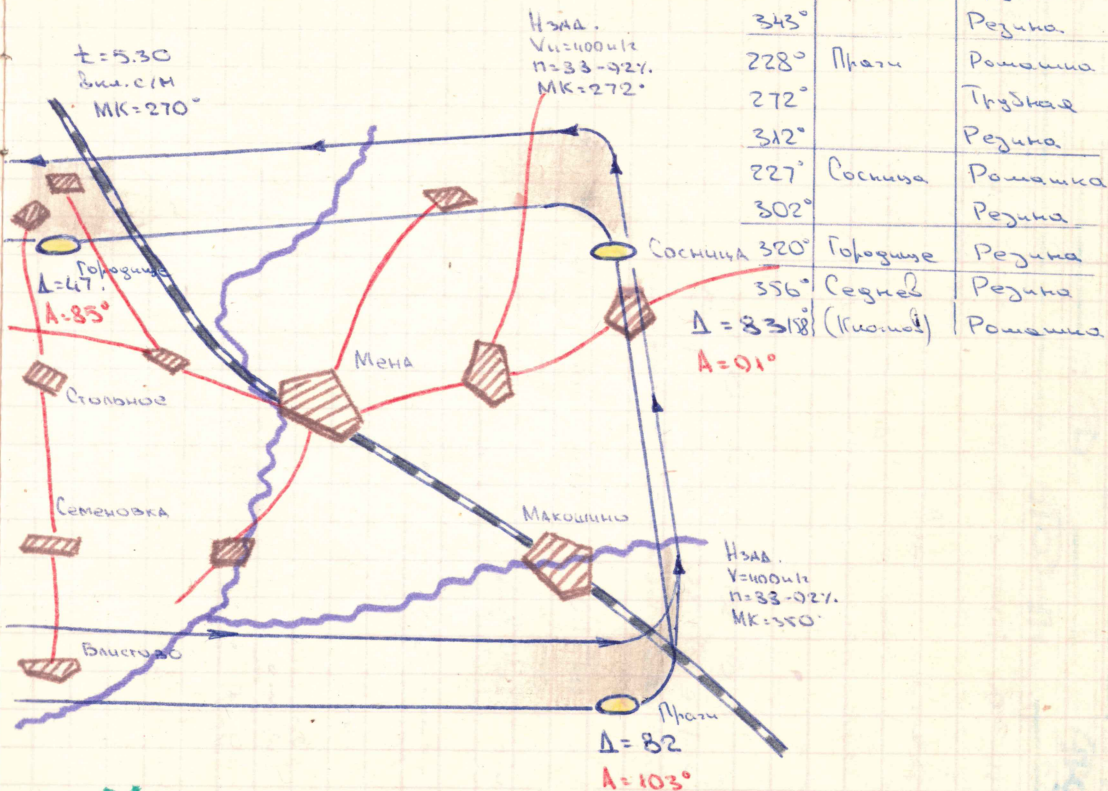 t=5.30
Вкл. с/м
МК=270°
Нзад.
Vи=400 и/г
n=33-92%.
МК=272°
343° Резина
228° Праги Ромашка
272° Трубная
312° Резина
227° Сосница Ромашка
302° Резина
320° Городище Резина
356° Седнев Резина
Ромашка
Сосница
Δ=83
А=91°
Городище
Δ=47.
А=85°
Мена
Стольное
Семеновка
Макошино
Блистово
Нзад.
V=400 и/г
n=33-92%.
МК=350°
Праги
Δ=82
А=103°